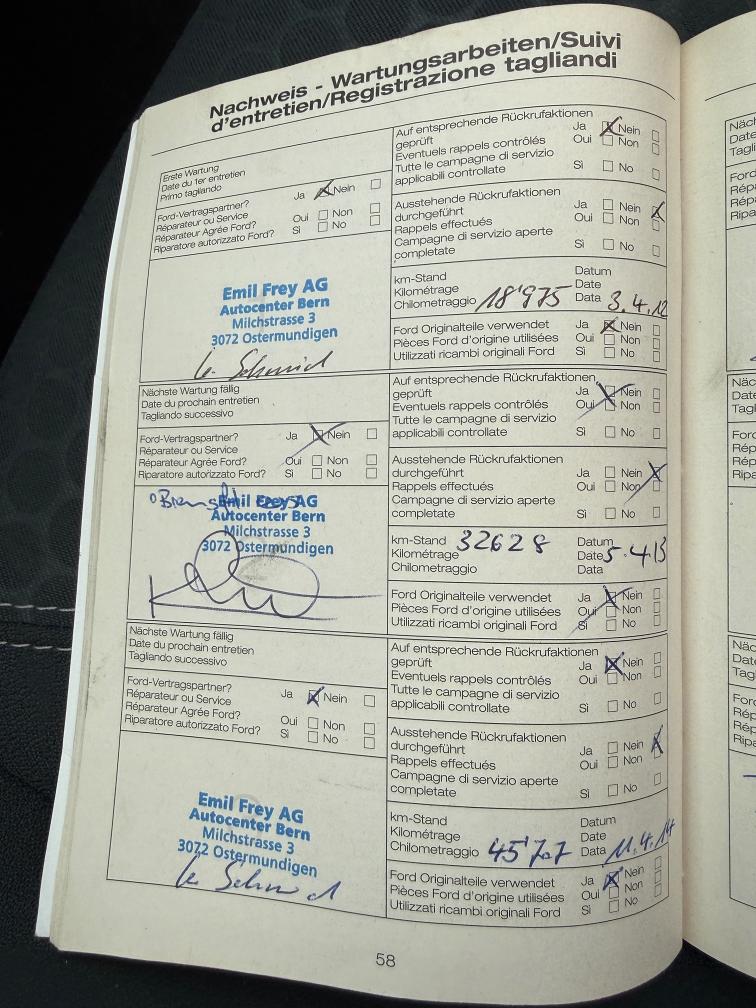 Nachweis - Wartungsarbeiten/Suivi
d'entretien/Registrazione tagliandi
Erste Wartung
Date du 1er entretien
Primo tagliando
Ford-Vertragspartner? Ja Nein
Réparateur ou Service
Réparateur Agrée Ford? Oui Non
Riparatore autorizzato Ford? Sì No
Emil Frey AG
Autocenter Bern
Milchstrasse 3
3072 Ostermundigen
Auf entsprechende Rückrufaktionen
geprüft Ja Nein
Eventuels rappels contrôlés Oui Non
Tutte le campagne di servizio
applicabili controllate Sì No
Ausstehende Rückrufaktionen
durchgeführt Ja Nein
Rappels effectués Oui Non
Campagne di servizio aperte
completate Sì No
km-Stand Datum
Kilométrage Date
Chilometraggio 18'975 Data 3.4.12
Ford Originalteile verwendet Ja Nein
Pièces Ford d'origine utilisées Oui Non
Utilizzati ricambi originali Ford Sì No
Nächste Wartung fällig
Date du prochain entretien
Tagliando successivo
Ford-Vertragspartner? Ja Nein
Réparateur ou Service
Réparateur Agrée Ford? Oui Non
Riparatore autorizzato Ford? Sì No
Emil Frey AG
Autocenter Bern
Milchstrasse 3
3072 Ostermundigen
Auf entsprechende Rückrufaktionen
geprüft Ja Nein
Eventuels rappels contrôlés Oui Non
Tutte le campagne di servizio
applicabili controllate Sì No
Ausstehende Rückrufaktionen
durchgeführt Ja Nein
Rappels effectués Oui Non
Campagne di servizio aperte
completate Sì No
km-Stand 32628 Datum
Kilométrage Date 5.4.13
Chilometraggio Data
Ford Originalteile verwendet Ja Nein
Pièces Ford d'origine utilisées Oui Non
Utilizzati ricambi originali Ford Sì No
Nächste Wartung fällig
Date du prochain entretien
Tagliando successivo
Ford-Vertragspartner? Ja Nein
Réparateur ou Service
Réparateur Agrée Ford? Oui Non
Riparatore autorizzato Ford? Sì No
Emil Frey AG
Autocenter Bern
Milchstrasse 3
3072 Ostermundigen
Auf entsprechende Rückrufaktionen
geprüft Ja Nein
Eventuels rappels contrôlés Oui Non
Tutte le campagne di servizio
applicabili controllate Sì No
Ausstehende Rückrufaktionen
durchgeführt Ja Nein
Rappels effectués Oui Non
Campagne di servizio aperte
completate Sì No
km-Stand Datum
Kilométrage Date
Chilometraggio 45'707 Data 11.4.14
Ford Originalteile verwendet Ja Nein
Pièces Ford d'origine utilisées Oui Non
Utilizzati ricambi originali Ford Sì No
58